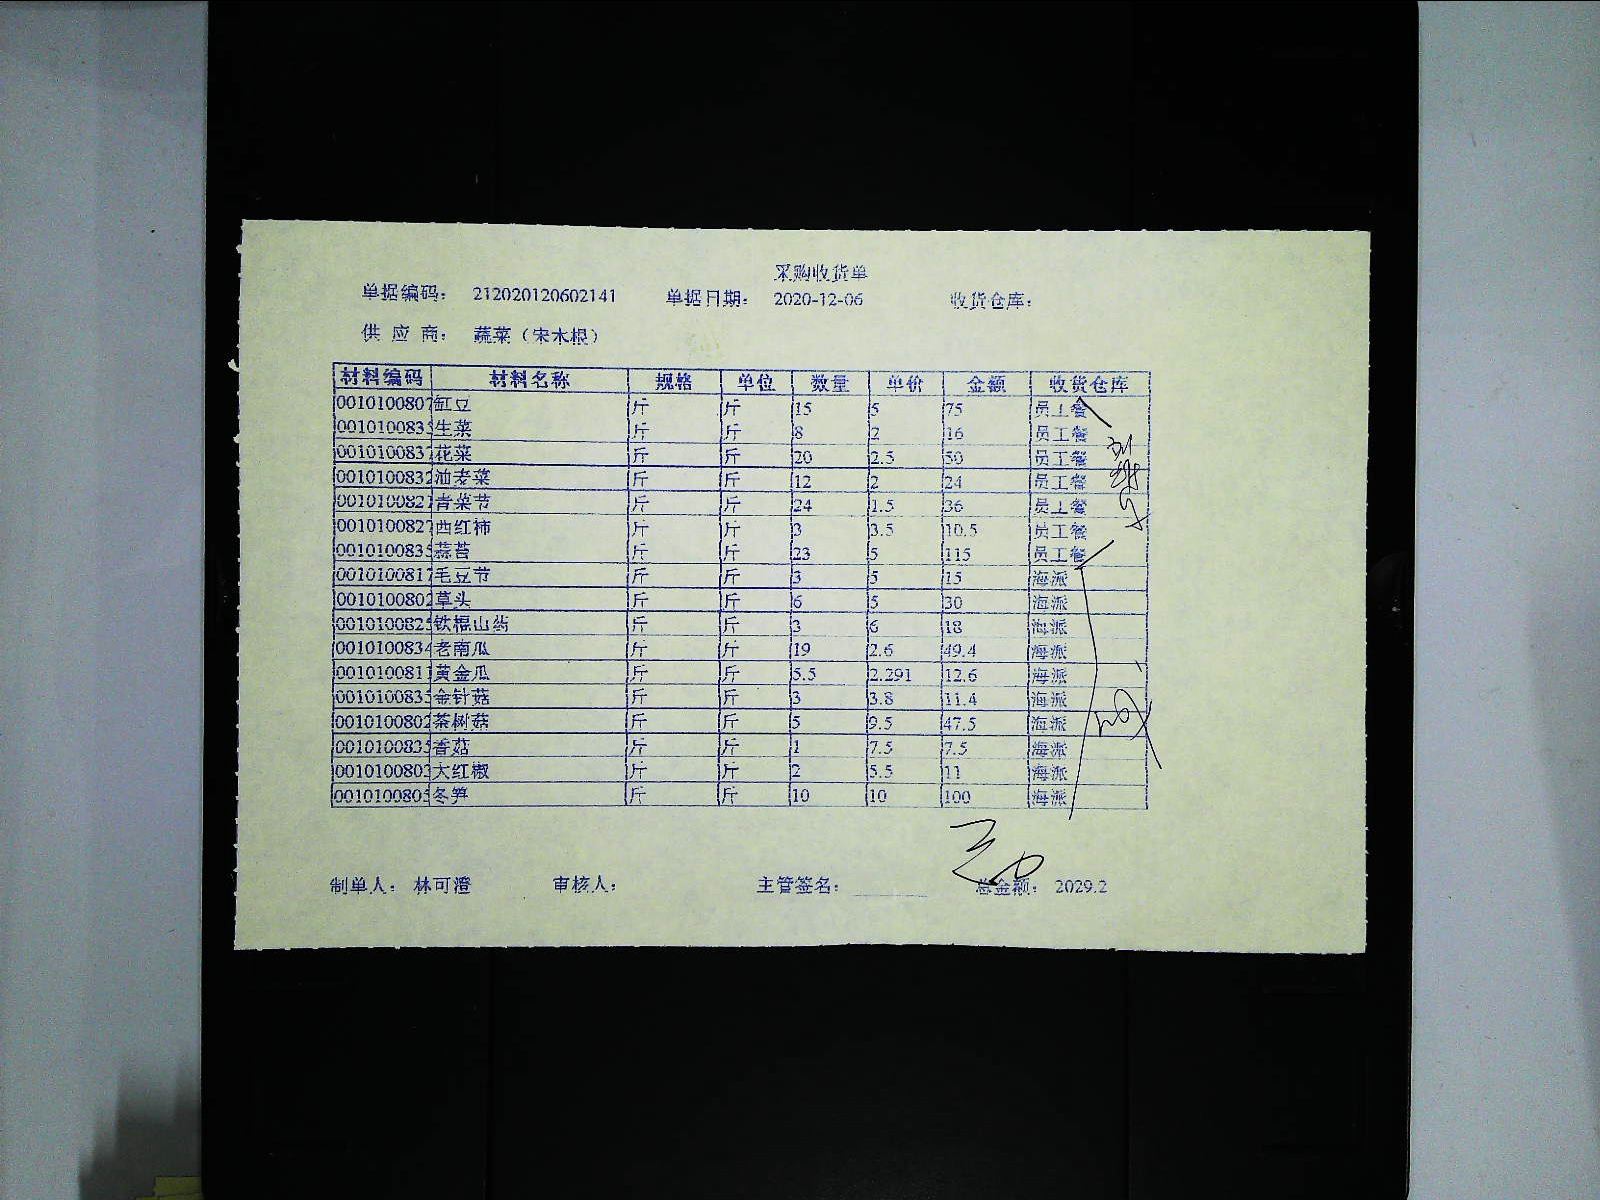 采购收货单
单据编码： 212020120602141 单据日期： 2020-12-06 收货仓库：
供 应 商： 蔬菜（宋木根）
材料编码 材料名称 规格 单位 数量 单价 金额 收货仓库
0010100807 缸豆 斤 斤 15 5 75 员工餐
001010083 生菜 斤 斤 8 2 16 员工餐
001010083 花菜 斤 斤 20 2.5 50 员工餐
0010100832 油麦菜 斤 斤 12 2 24 员工餐
001010082 青菜节 斤 斤 24 1.5 36 员工餐
0010100827 西红柿 斤 斤 3 3.5 10.5 员工餐
001010083 蒜苔 斤 斤 23 5 115 员工餐
0010100817 毛豆节 斤 斤 3 5 15 海派
0010100802 草头 斤 斤 6 5 30 海派
001010082 铁棍山药 斤 斤 3 6 18 海派
0010100834 老南瓜 斤 斤 19 2.6 49.4 海派
001010081 黄金瓜 斤 斤 5.5 2.291 12.6 海派
001010083 金针菇 斤 斤 3 3.8 11.4 海派
0010100802 茶树菇 斤 斤 5 9.5 47.5 海派
001010083 香菇 斤 斤 1 7.5 7.5 海派
0010100803 大红椒 斤 斤 2 5.5 11 海派
001010080 冬笋 斤 斤 10 10 100 海派
制单人： 林可澄 审核人： 主管签名： 总金额： 2029.2